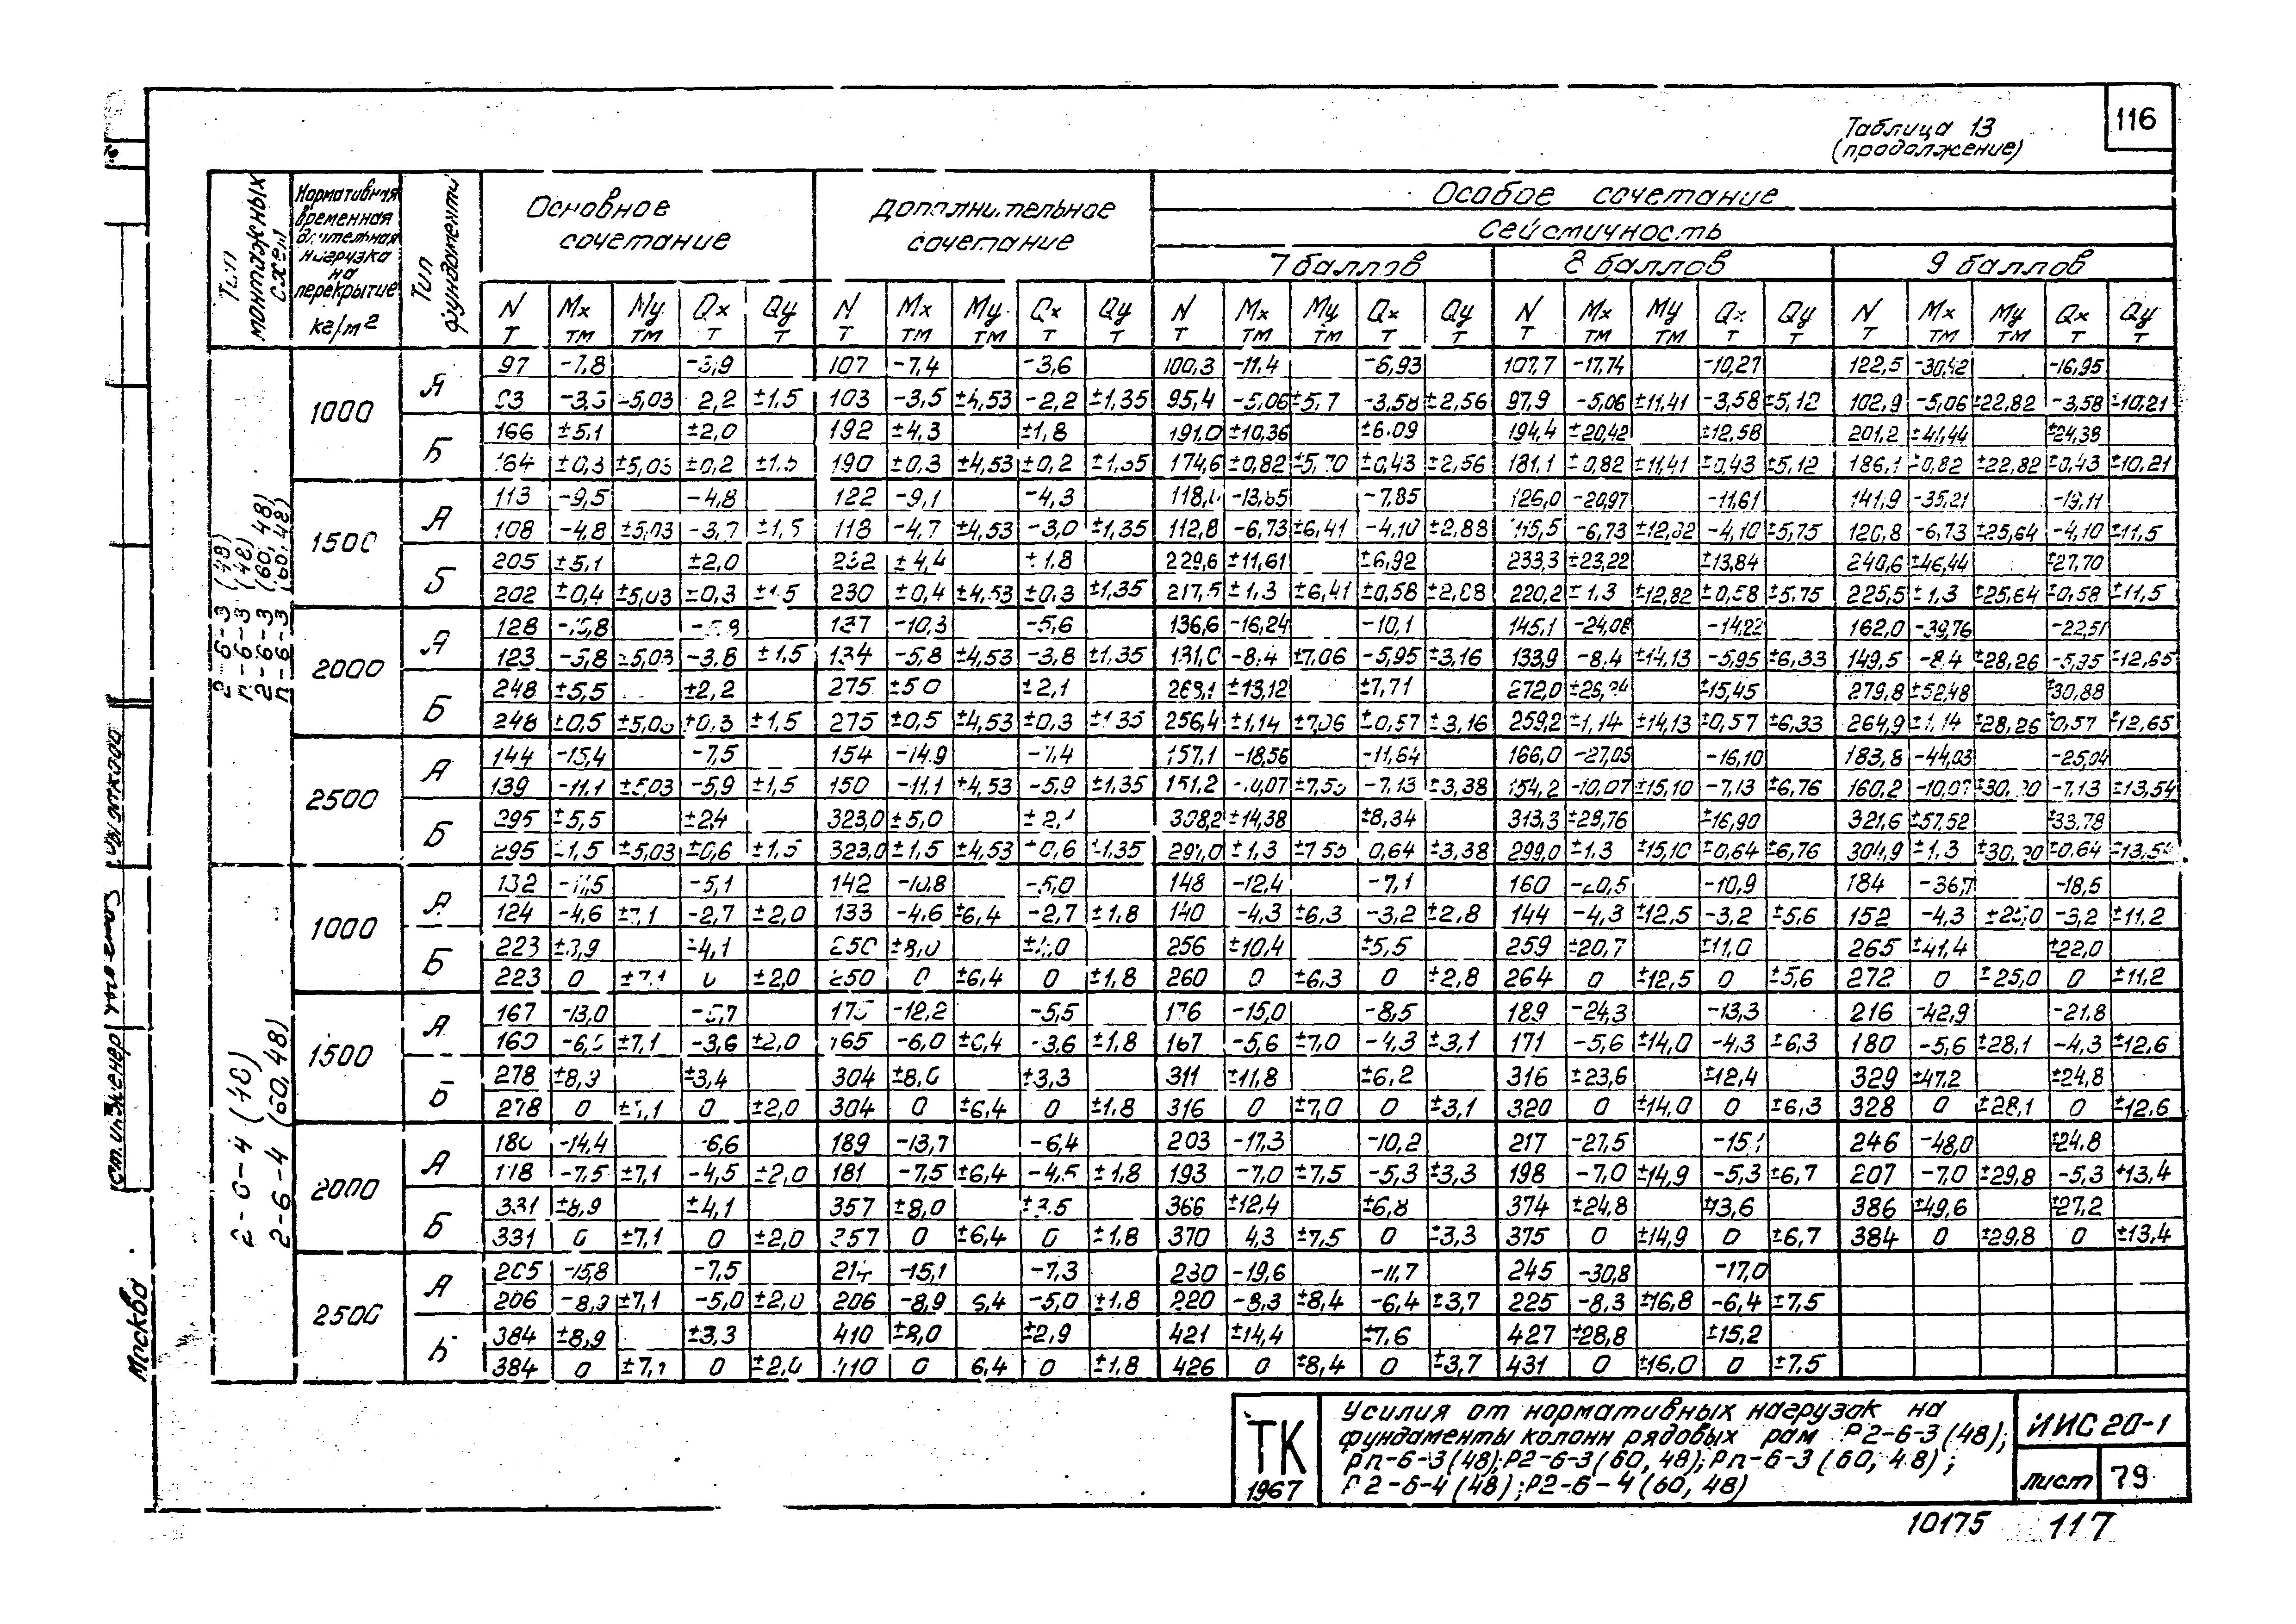 116
Таблица 13
(продолжение)
Тип монтажных схем
Нормативная временная длительная нагрузка на перекрытие кг/м²
Тип фундамента
Основное сочетание
Дополнительное сочетание
Особое сочетание
Сейсмичность
7 баллов 8 баллов 9 баллов
N Mx My Qx Qy N Mx My Qx Qy N Mx My Qx Qy N Mx My Qx Qy N Mx My Qx Qy
т тм тм т т т тм тм т т т тм тм т т т тм тм т т т тм тм т т
2-6-3 (48)
п-6-3 (48)
2-6-3 (60, 48)
п-6-3 (60, 48)
1000
А
97 -7,8 -3,9 107 -7,4 -3,6 100,3 -11,4 -6,93 107,7 -17,74 -10,27 122,5 -30,42 -16,95
-5,03 2,2 ±1,5 103 -3,5 ±4,53 -2,2 ±1,35 95,4 -5,06 ±5,7 -3,58 ±2,56 97,9 -5,06 ±11,41 -3,58 ±5,12 102,9 -5,06 ±22,82 -3,58 ±10,21
Б
166 ±5,1 ±2,0 192 ±4,3 ±1,8 191,0 ±10,36 ±6,09 194,4 ±20,42 ±12,58 201,2 ±41,44 ±24,38
164 ±0,3 ±5,03 ±0,2 ±1,5 190 ±0,3 ±4,53 ±0,2 ±1,35 174,6 ±0,82 ±5,70 ±0,43 ±2,56 181,1 ±0,82 ±11,41 ±0,43 ±5,12 186,1 ±0,82 ±22,82 ±0,43 ±10,21
1500
А
113 -9,5 -4,8 122 -9,1 -4,3 -13,65 -7,85 126,0 -20,97 -11,61 141,9 -35,21 -19,11
108 -4,8 ±5,03 -3,7 ±1,5 118 -4,7 ±4,53 -3,0 ±1,35 112,8 -6,73 ±6,41 -4,10 ±2,88 115,5 -6,73 ±12,82 -4,10 ±5,75 120,8 -6,73 ±25,64 -4,10 ±11,5
Б
205 ±5,1 ±2,0 232 ±4,4 ±1,8 229,6 ±11,61 ±6,92 233,3 ±23,22 ±13,84 240,6 ±46,44 ±27,70
202 ±0,4 ±5,03 ±0,3 ±1,5 230 ±0,4 ±4,53 ±0,3 ±1,35 217,5 ±1,3 ±6,41 ±0,58 ±2,88 220,2 ±1,3 ±12,82 ±0,58 ±5,75 225,5 ±1,3 ±25,64 ±0,58 ±11,5
2000
А
128 137 -10,3 -5,6 136,6 -16,24 -10,1 145,1 -24,08 -14,22 162,0 -39,76 -22,51
123 -5,8 ±5,03 -3,8 ±1,5 134 -5,8 ±4,53 -3,8 ±1,35 131,0 -8,4 ±7,06 -5,95 ±3,16 133,9 -8,4 ±14,13 -5,95 ±6,33 149,5 -8,4 ±28,26 -5,95 ±12,65
Б
248 ±5,5 ±2,2 275 ±5,0 ±2,1 269,1 ±13,12 ±7,71 272,0 ±26,24 ±15,45 279,8 ±52,48 ±30,88
248 ±0,5 ±5,03 ±0,3 ±1,5 275 ±0,5 ±4,53 ±0,3 ±1,35 256,4 ±1,14 ±7,06 ±0,57 ±3,16 259,2 ±1,14 ±14,13 ±0,57 ±6,33 264,9 ±1,14 ±28,26 ±0,57 ±12,65
2500
А
144 -15,4 -7,5 154 -14,9 -7,4 157,1 -18,56 -11,64 166,0 -27,05 -16,10 183,8 -44,03 -25,04
139 -11,1 ±5,03 -5,9 ±1,5 150 -11,1 ±4,53 -5,9 ±1,35 151,2 -10,07 ±7,55 -7,13 ±3,38 154,2 -10,07 ±15,10 -7,13 ±6,76 160,2 -10,07 ±30,20 -7,13 ±13,54
Б
295 ±5,5 ±2,4 323,0 ±5,0 ±2,1 308,2 ±14,38 ±8,34 313,3 ±28,76 ±16,90 321,6 ±57,52 ±33,78
295 ±1,5 ±5,03 ±0,6 ±1,5 323,0 ±1,5 ±4,53 ±0,6 ±1,35 ±1,3 ±7,55 0,64 ±3,38 299,0 ±1,3 ±15,10 ±0,64 ±6,76 304,9 ±1,3 ±30,20 ±0,64 ±13,54
2-6-4 (48)
2-6-4 (60, 48)
1000
А
132 -5,1 142 -10,8 -5,0 148 -12,4 -7,1 160 -20,5 -10,9 184 -36,7 -18,5
124 -4,6 ±7,1 -2,7 ±2,0 133 -4,6 ±6,4 -2,7 ±1,8 140 -4,3 ±6,3 -3,2 ±2,8 144 -4,3 ±12,5 -3,2 ±5,6 152 -4,3 ±25,0 -3,2 ±11,2
Б
223 ±8,9 ±4,1 250 ±8,0 ±4,0 256 ±10,4 ±5,5 259 ±20,7 ±11,0 265 ±41,4 ±22,0
223 0 ±7,1 0 ±2,0 250 0 ±6,4 0 ±1,8 260 0 ±6,3 0 ±2,8 264 0 ±12,5 0 ±5,6 272 0 ±25,0 0 ±11,2
1500
А
167 -13,0 -5,7 175 -12,2 -5,5 176 -15,0 -8,5 189 -24,3 -13,3 216 -42,9 -21,8
160 ±7,1 -3,6 ±2,0 165 -6,0 ±6,4 -3,6 ±1,8 167 -5,6 ±7,0 -4,3 ±3,1 171 -5,6 ±14,0 -4,3 ±6,3 180 -5,6 ±28,1 -4,3 ±12,6
Б
278 ±8,9 ±3,4 304 ±8,0 ±3,3 311 ±11,8 ±6,2 316 ±23,6 ±12,4 329 ±47,2 ±24,8
278 0 ±7,1 0 ±2,0 304 0 ±6,4 0 ±1,8 316 0 ±7,0 0 ±3,1 320 0 ±14,0 0 ±6,3 328 0 ±28,1 0 ±12,6
2000
А
180 -14,4 -6,6 189 -13,7 -6,4 203 -17,3 -10,2 217 -27,5 -15,1 246 -48,0 ±24,8
178 -7,5 ±7,1 -4,5 ±2,0 181 -7,5 ±6,4 -4,5 ±1,8 193 -7,0 ±7,5 -5,3 ±3,3 198 -7,0 ±14,9 -5,3 ±6,7 207 -7,0 ±29,8 -5,3 ±13,4
Б
331 ±8,9 ±4,1 357 ±8,0 ±3,5 366 ±12,4 ±6,8 374 ±24,8 ±13,6 386 ±49,6 ±27,2
331 0 ±7,1 0 ±2,0 357 0 ±6,4 0 ±1,8 370 4,3 ±7,5 0 ±3,3 375 0 ±14,9 0 ±6,7 384 0 ±29,8 0 ±13,4
2500
А
205 -15,8 -7,5 214 -15,1 -7,3 230 -19,6 -11,7 245 -30,8 -17,0
206 -8,9 ±7,1 -5,0 ±2,0 206 -8,9 6,4 -5,0 ±1,8 220 -8,3 ±8,4 -6,4 ±3,7 225 -8,3 ±16,8 -6,4 ±7,5
Б
384 ±8,9 ±3,3 410 ±8,0 ±2,9 421 ±14,4 ±7,6 427 ±28,8 ±15,2
384 0 ±7,1 0 ±2,0 410 0 6,4 0 ±1,8 426 0 ±8,4 0 ±3,7 431 0 ±16,0 0 ±7,5
ст. инженер
Москва
ТК
1967
Усилия от нормативных нагрузок на
фундаменты колонн рядовых рам Р2-6-3 (48);
Рп-6-3 (48); Р2-6-3 (60, 48); Рп-6-3 (60, 48);
Р2-6-4 (48); Р2-6-4 (60, 48)
ИИС 20-1
лист 79
10175 117